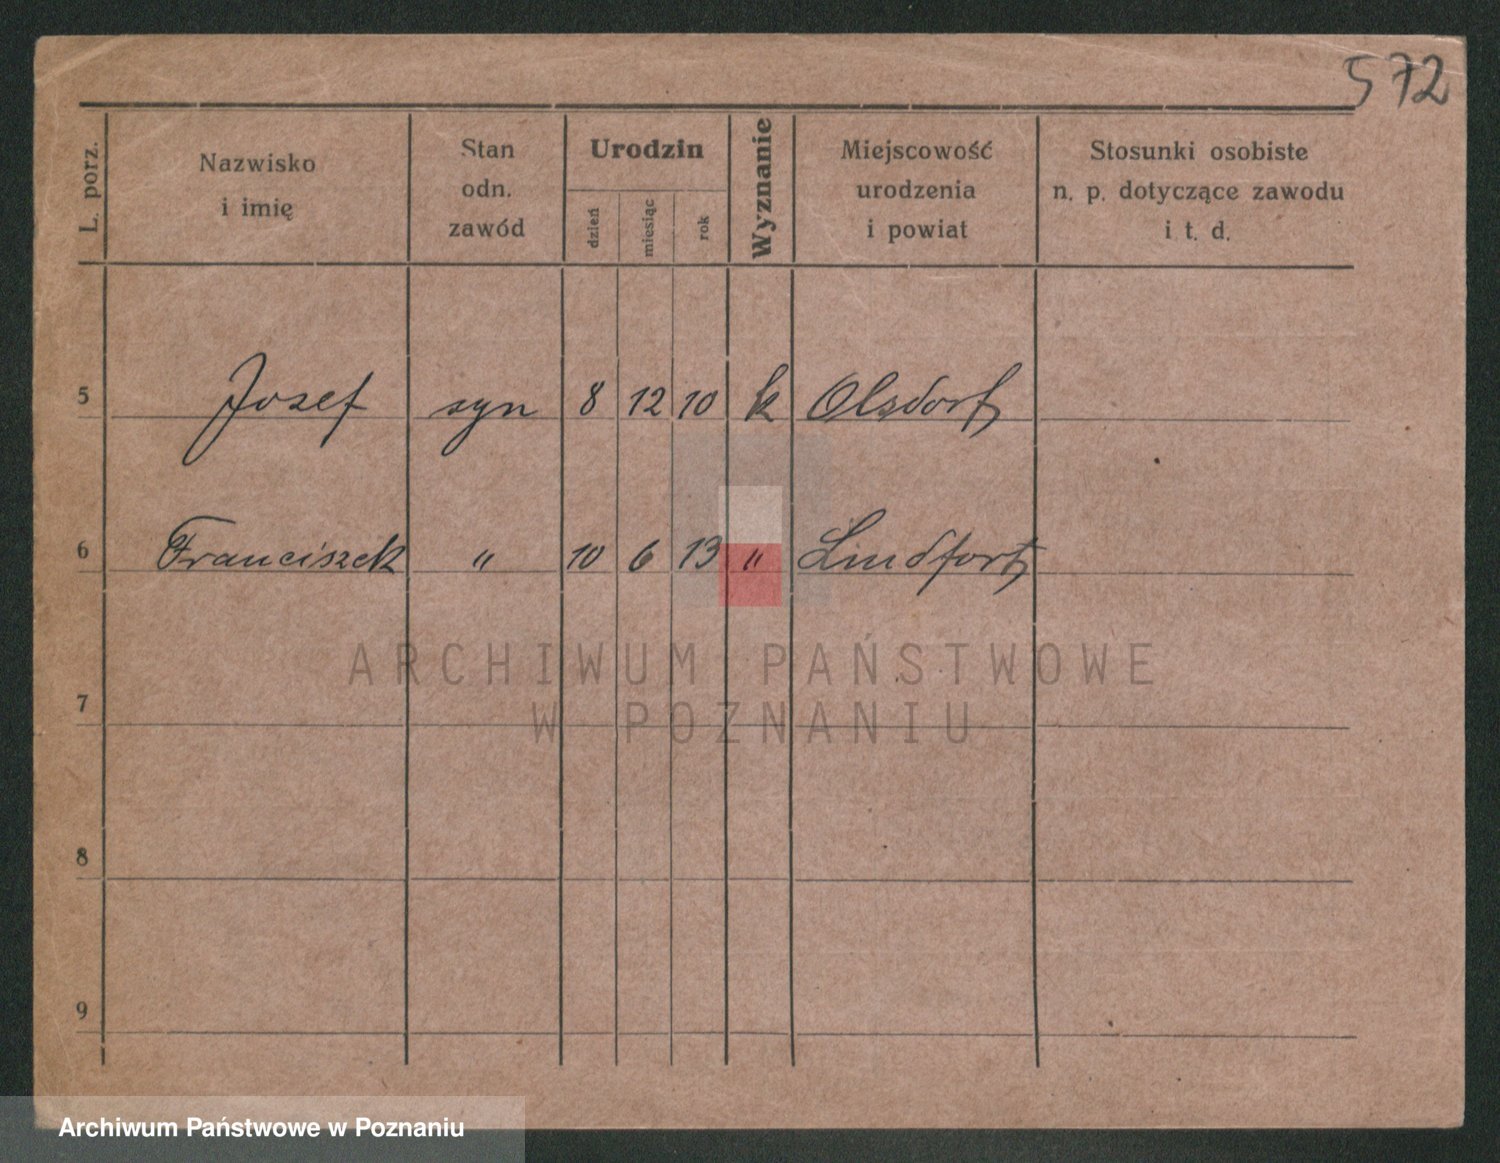 572
L. porz.
Nazwisko
i imię
Stan
odn.
zawód
Urodzin
dzień
miesiąc
rok
Wyznanie
Miejscowość
urodzenia
i powiat
Stosunki osobiste
n. p. dotyczące zawodu
i t. d.
5 Josef syn 8 12 10 k Olsdorf
6 Franciszek " 10 6 13 " Lindfort
7
8
9
ARCHIWUM PAŃSTWOWE
W POZNANIU
Archiwum Państwowe w Poznaniu